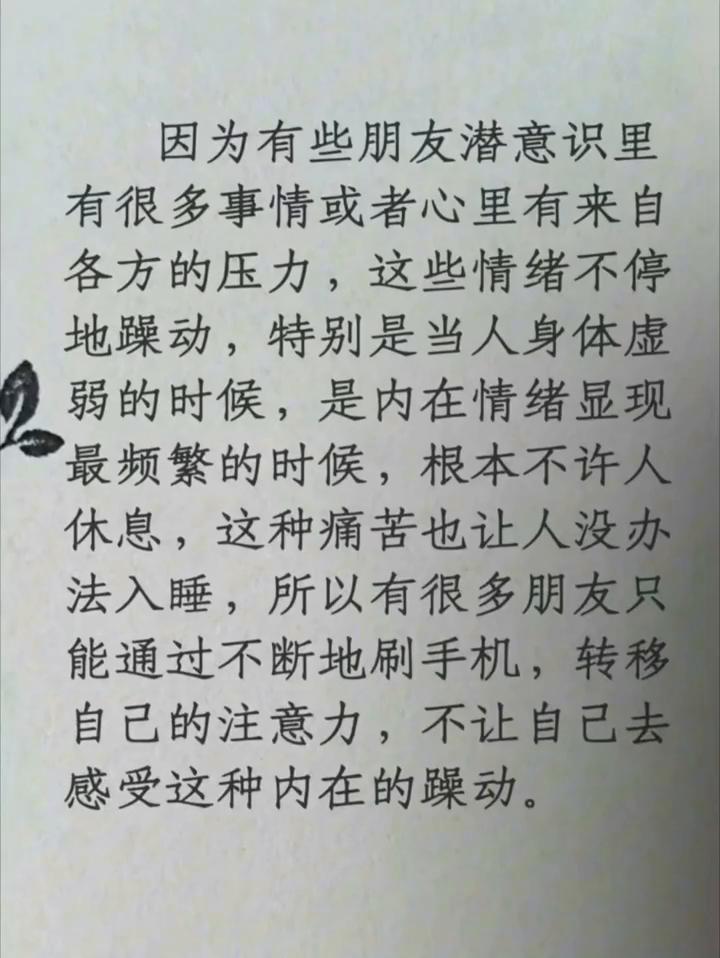 因为有些朋友潜意识里
有很多事情或者心里有来自
各方的压力，这些情绪不停
地躁动，特别是当人身体虚
弱的时候，是内在情绪显现
最频繁的时候，根本不许人
休息，这种痛苦也让人没办
法入睡，所以有很多朋友只
能通过不断地刷手机，转移
自己的注意力，不让自己去
感受这种内在的躁动。